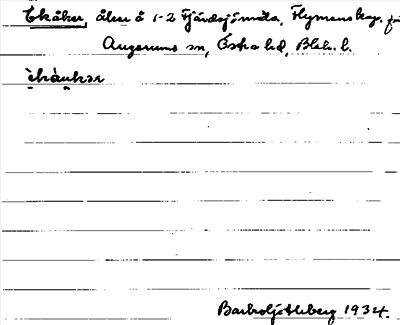 Ekåker, åker å 1-2 Fjärdsjömåla, Flymens kap. fs
Augerums sn, Östra hd, Blek. l.
èkàukər
Barbro Ljötleberg 1934.